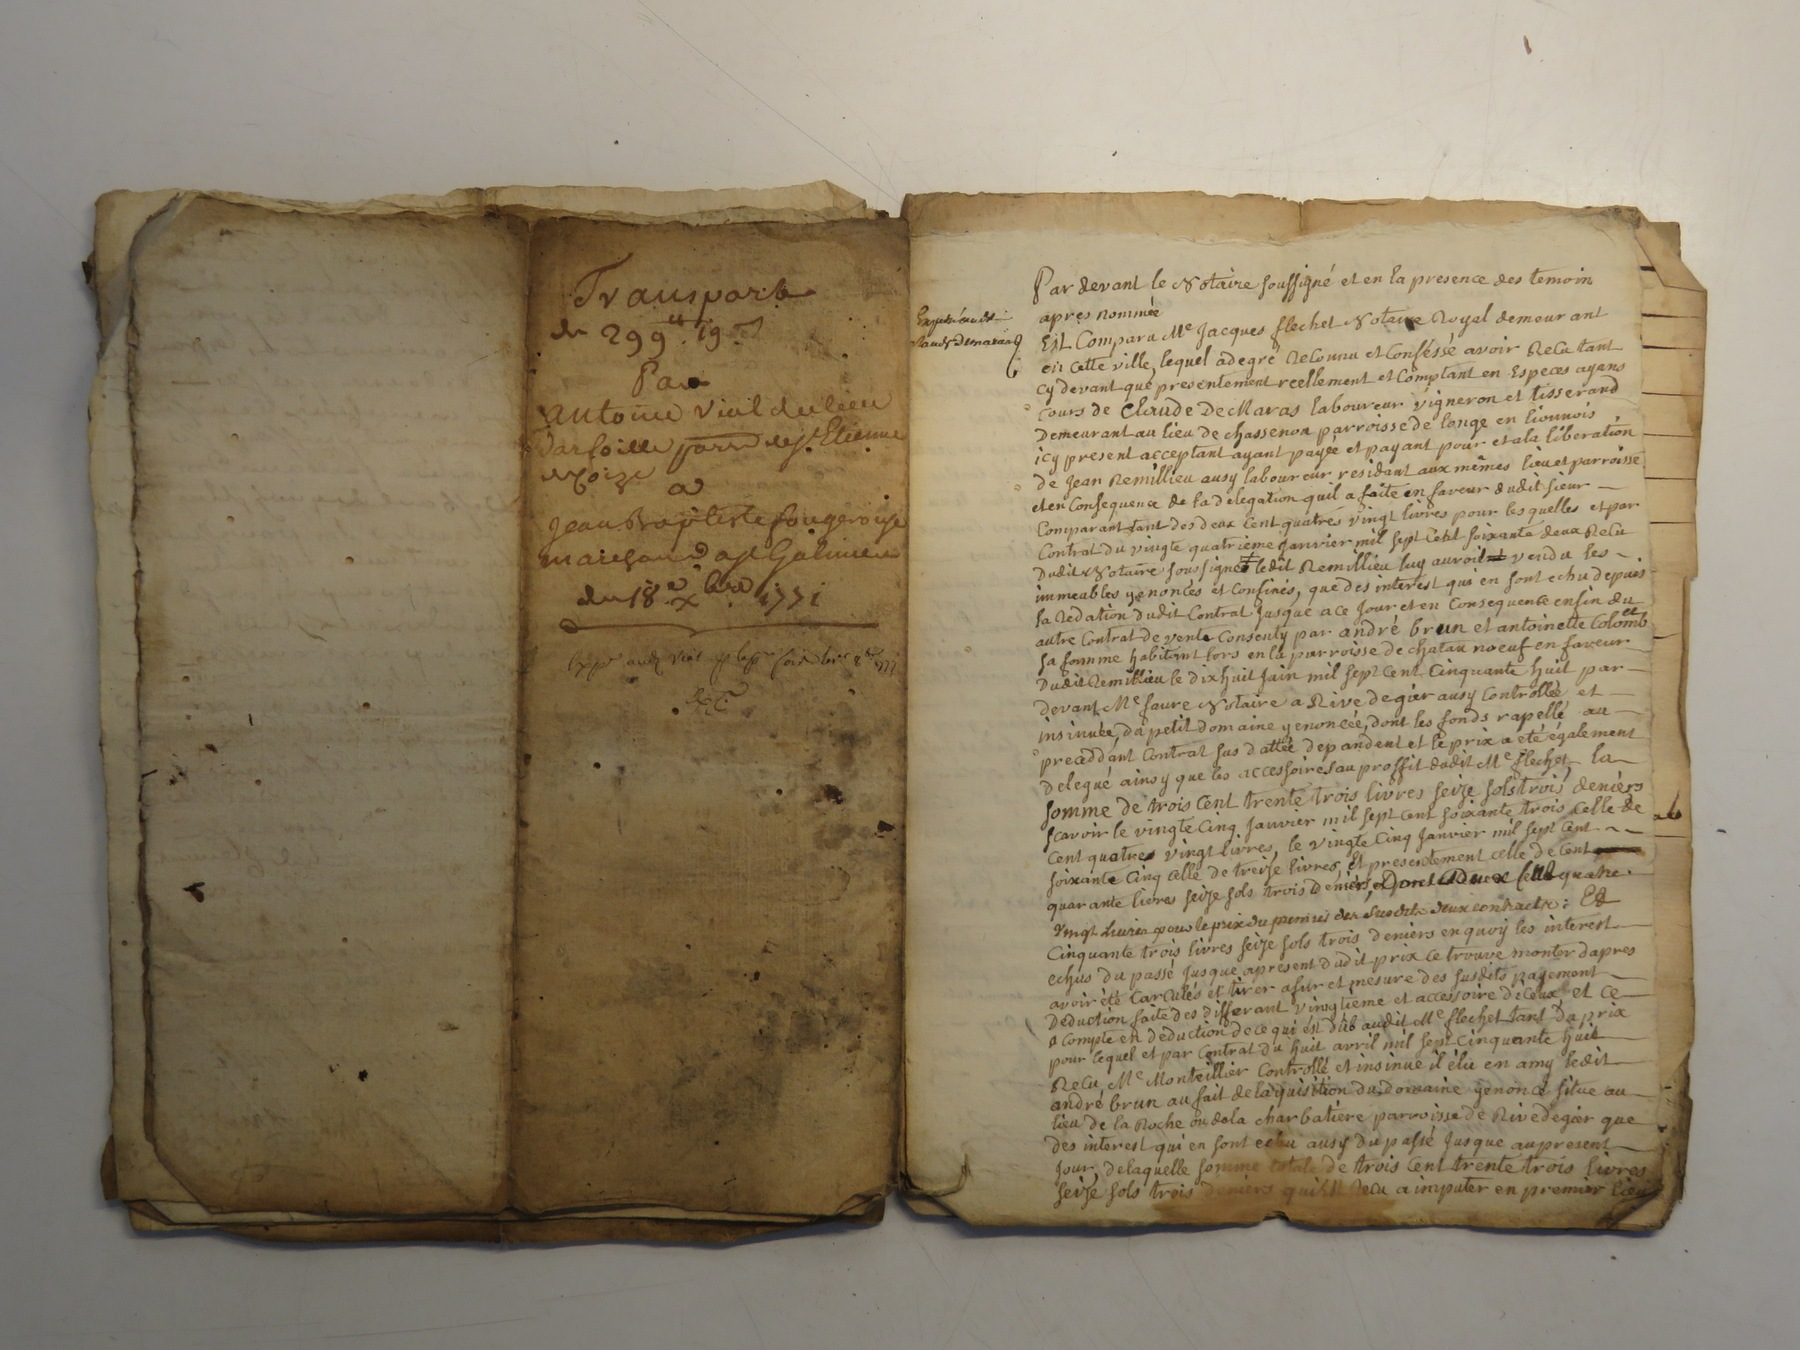 Transport
de 299 ᵗᵗ 19 s
Par
antoine vial du lieu
parr de St Etienne
a
Jean Baptiste fougerouse
marchand a St Galmier
du 18e xbre 1771
Par devant le Notaire soussigné et en la presence des temoin
apres nommée
Est Comparu Me Jacques flechet Notaire Royal demeurant
en cette ville, lequel adegré reconnu et Conféssé avoir Recu tant
cy devant que presentement reellement et Comptant en Especes ayans
cours de Claude DeMaras laboureur vigneron et tisserand
Demeurant au lieu de chassenou parroisse de longe en lionnois
icy present acceptant ayant payée et payant pour et a la libération
de Jean Remillieu ausy laboureur residant aux mêmes lieu et parroisse
et en Consequence de la delegation quil a faite en faveur dudit sieur
Comparant tant des deux Cent quatres vingt livres pour lesquelles et par
Contrat du vingte quatrieme Janvier mil sept Cent soixante deux Recu
dudit Notaire soussigné ledit Remillieu luy auroit vendu les
immeables yenoncés et Confinés, que des interest qui en sont echu depuis
la Redation dudit Contrat Jusque a ce Jour et en Consequence enfin du
autre Contrat de vente Consenty par andré brun et antoinette Colomb
sa fomme habitant lors en la parroisse de chatau noeuf en faveur
Dudit Remillieu le dix huit Juin mil sept Cent Cinquante huit par
devant Me faure Notaire a Rive de gier ausy Controllée et
insinuée, du petit domaine yenoncée, dont les fonds rapellé au
preaddant Contrat sus dattée depandent et le prix a eté également
delegué ainsy que les accessoires au proffit dudit Me flechet, la
somme de trois Cent trente trois livres seize sols trois deniérs
scavoir le vingte Cinq Janvier mil sept Cent soixante trois celle de
Cent quatres vingt livres, le vingte Cinq Janvier mil sept Cent
soixante Cinq celle de treize livres, et presentement celle de Cent
quarante livres seize sols trois deniérs, Dont celle quatre
vingt livres pour le prix du premier des susdits deux contracts : Et
Cinquante trois livres seize sols trois deniers en quoÿ les interest
echus du passé Jusque apresent dudit prix ce trouve monter dapres
avoir été Carculés et tirer afur et mesure des susdits payement
Déduction faite des differant vingtieme et accessoire diceux et ce
a Compte en deduction de ce qui est dub audit Me flechet tant du prix
pour lequel et par Contrat du huit avril mil sept Cinquante huit
Recu Me Monteillier Controllé et insinué il élu en amy ledit
andré brun au fait de laquisition du domaine yenoncé situe au
lieu de la Roche ou de la charbatiere parroisse de Rivedegier que
des interest qui en sont echu ausy du passé Jusque aupresent
Jour, de laquelle somme totale de trois Cent trente trois livres
seize sols trois deniers Recu a imputer en premier lieu